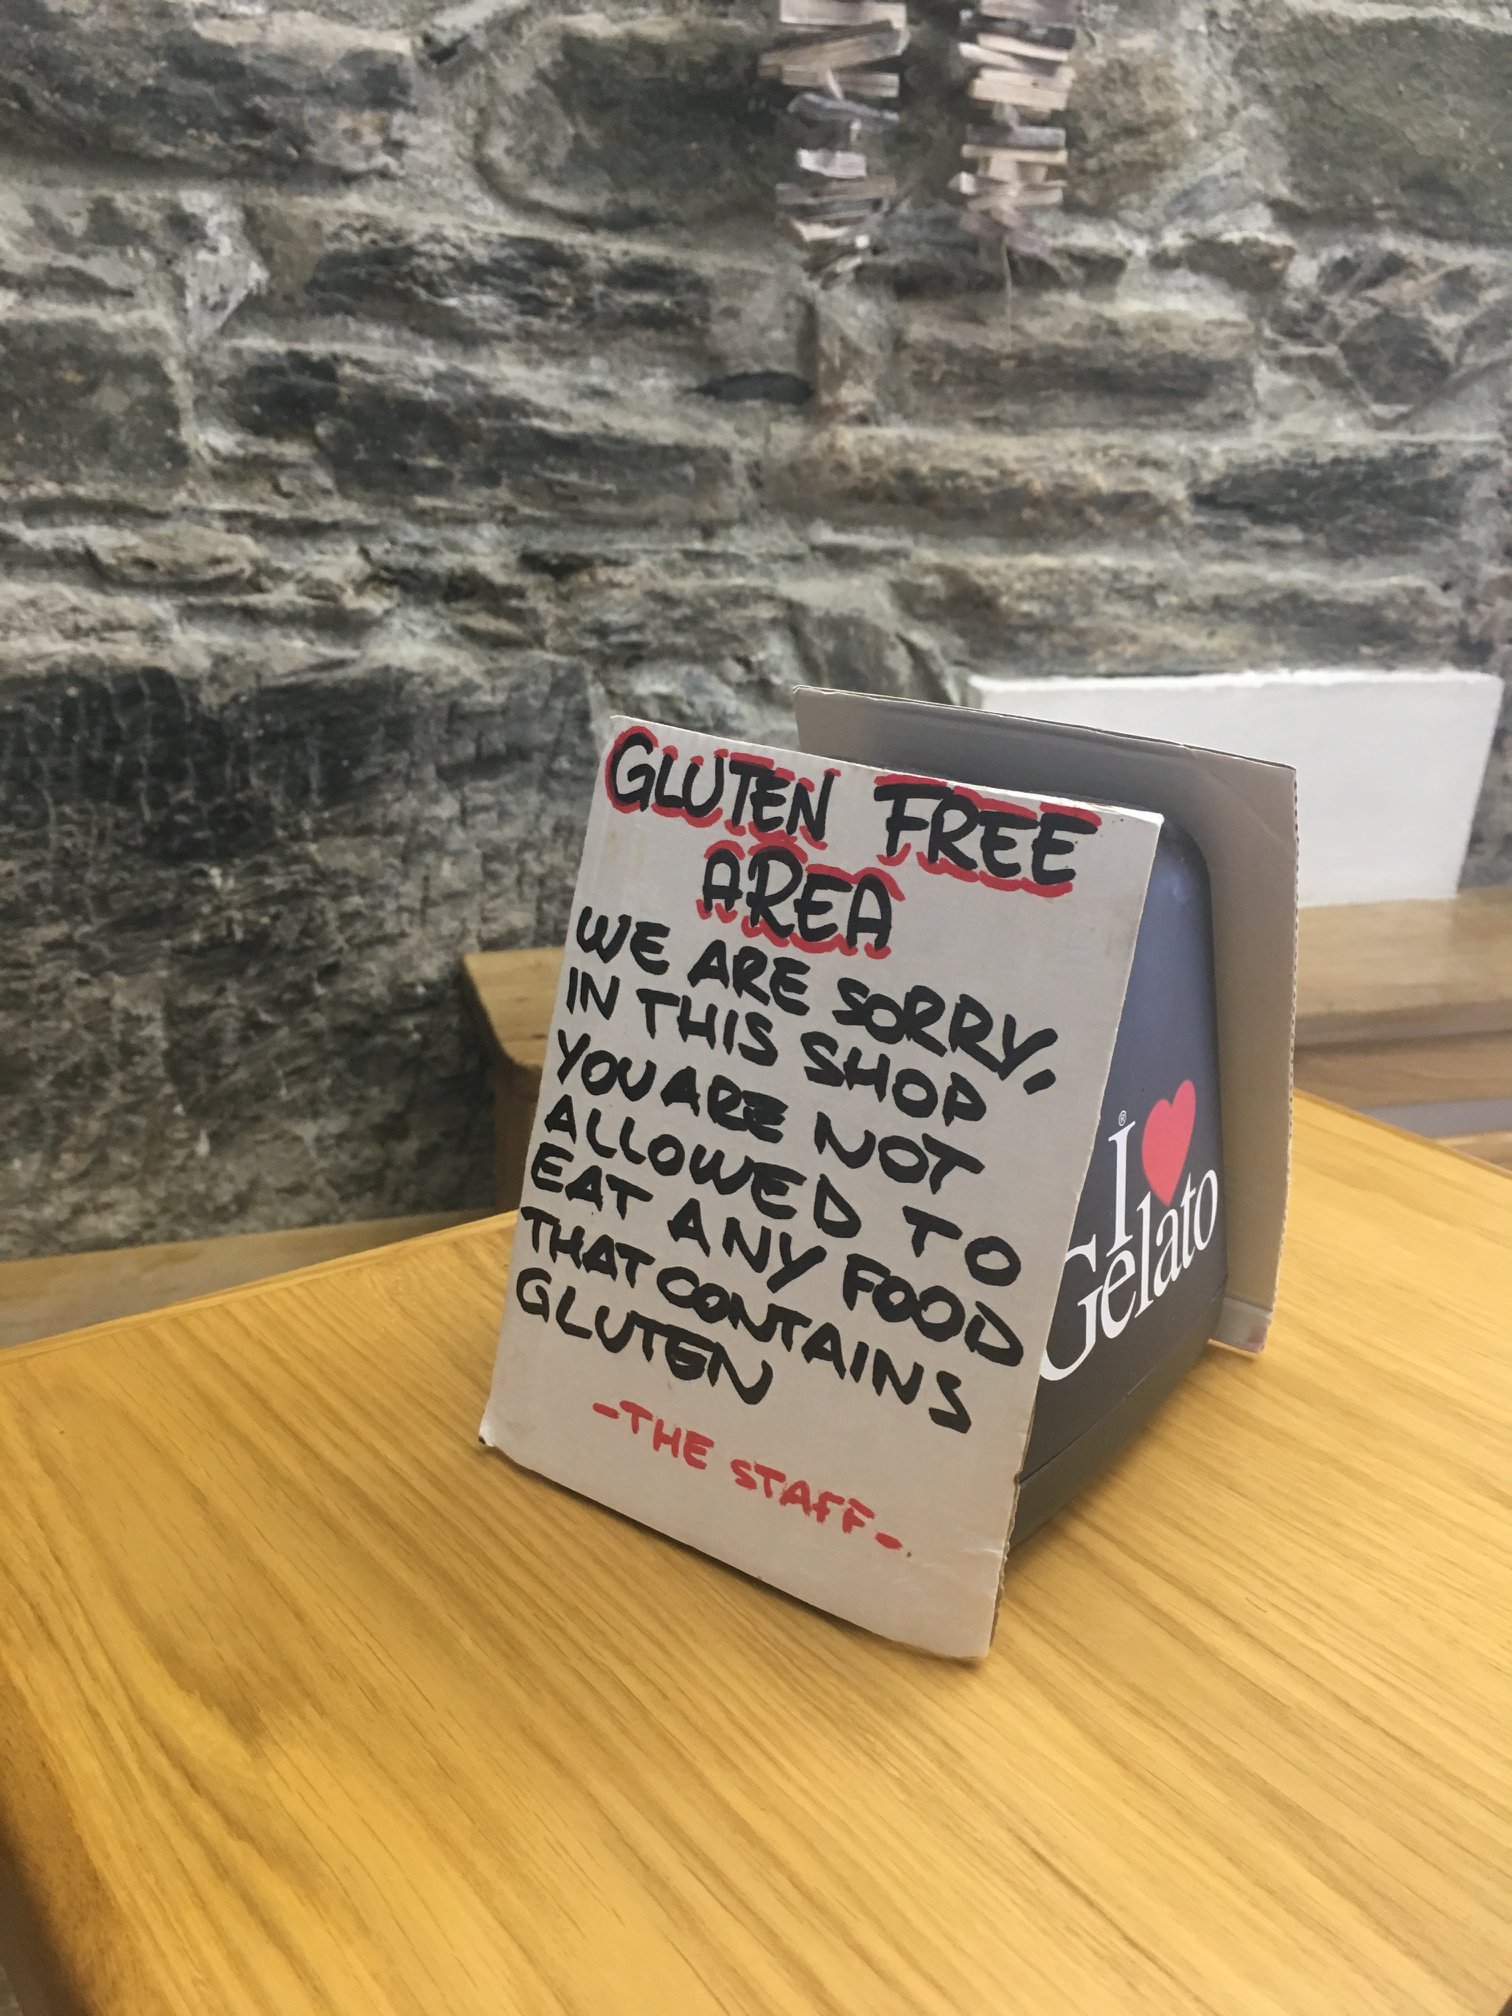 GLUTEN FREE
AREA
WE ARE SORRY,
IN THIS SHOP
YOU ARE NOT
ALLOWED TO
EAT ANY FOOD
THAT CONTAINS
GLUTEN
-THE STAFF-
I ❤ ®
Gelato